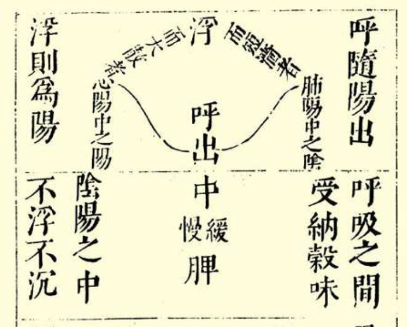 呼隨陽出
肺陽中之陰
而短濇者
浮
呼出
而大散者
心陽中之陽
浮則為陽
呼吸之間
受納穀味
中
緩慢
脾
陰陽之中
不浮不沉